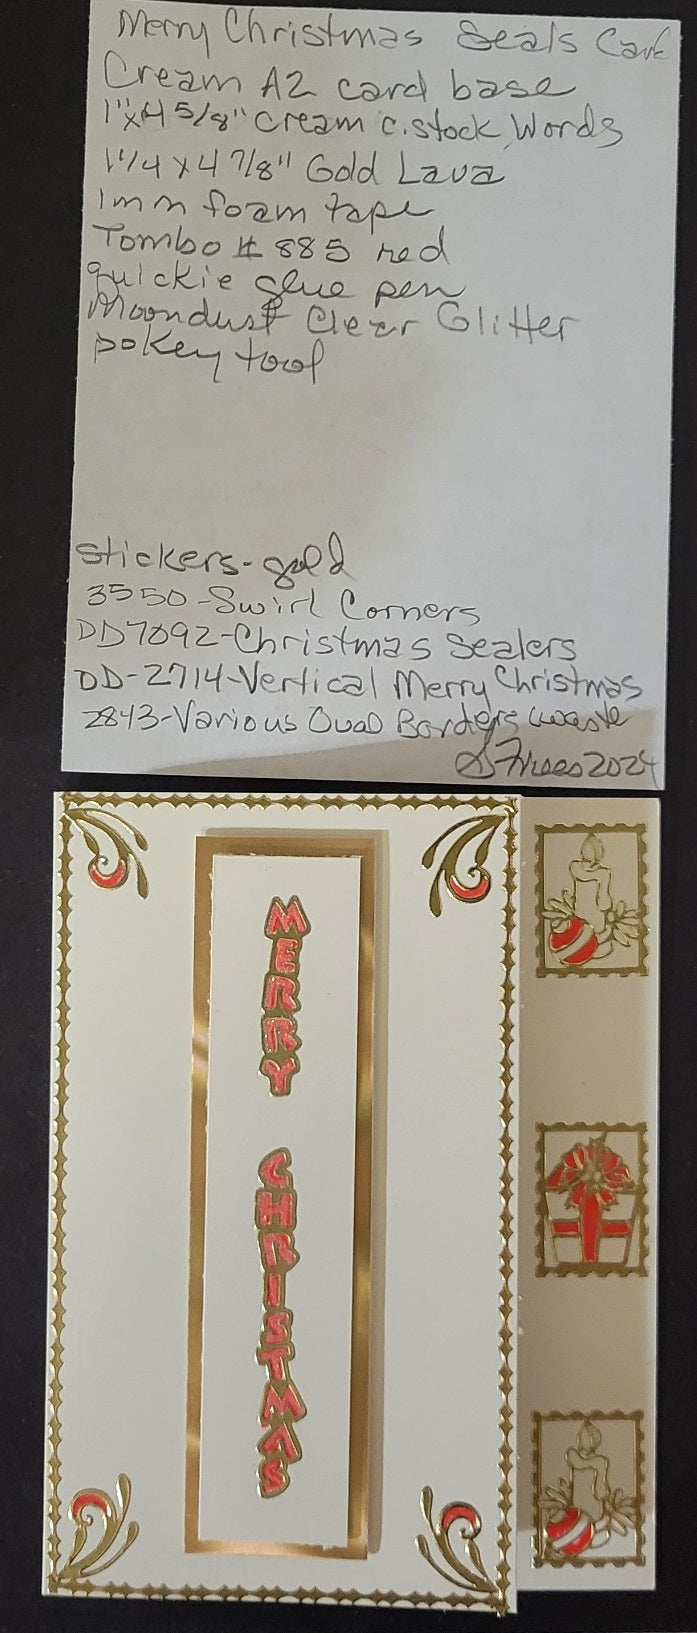 Merry Christmas Seals Card
Cream A2 card base
1"x4 5/8" cream c.stock, Words
1"1/4 x 4 7/8" Gold Lava
1mm foam tape
Tombo # 885 red
quickie glue pen
Moondust Clear Glitter
pokey tool
stickers-gold
3550-Swirl Corners
DD7092-Christmas Sealers
DD-2714-Vertical Merry Christmas
2843-Various Oval Borders waste
2024
MERRY
CHRISTMAS